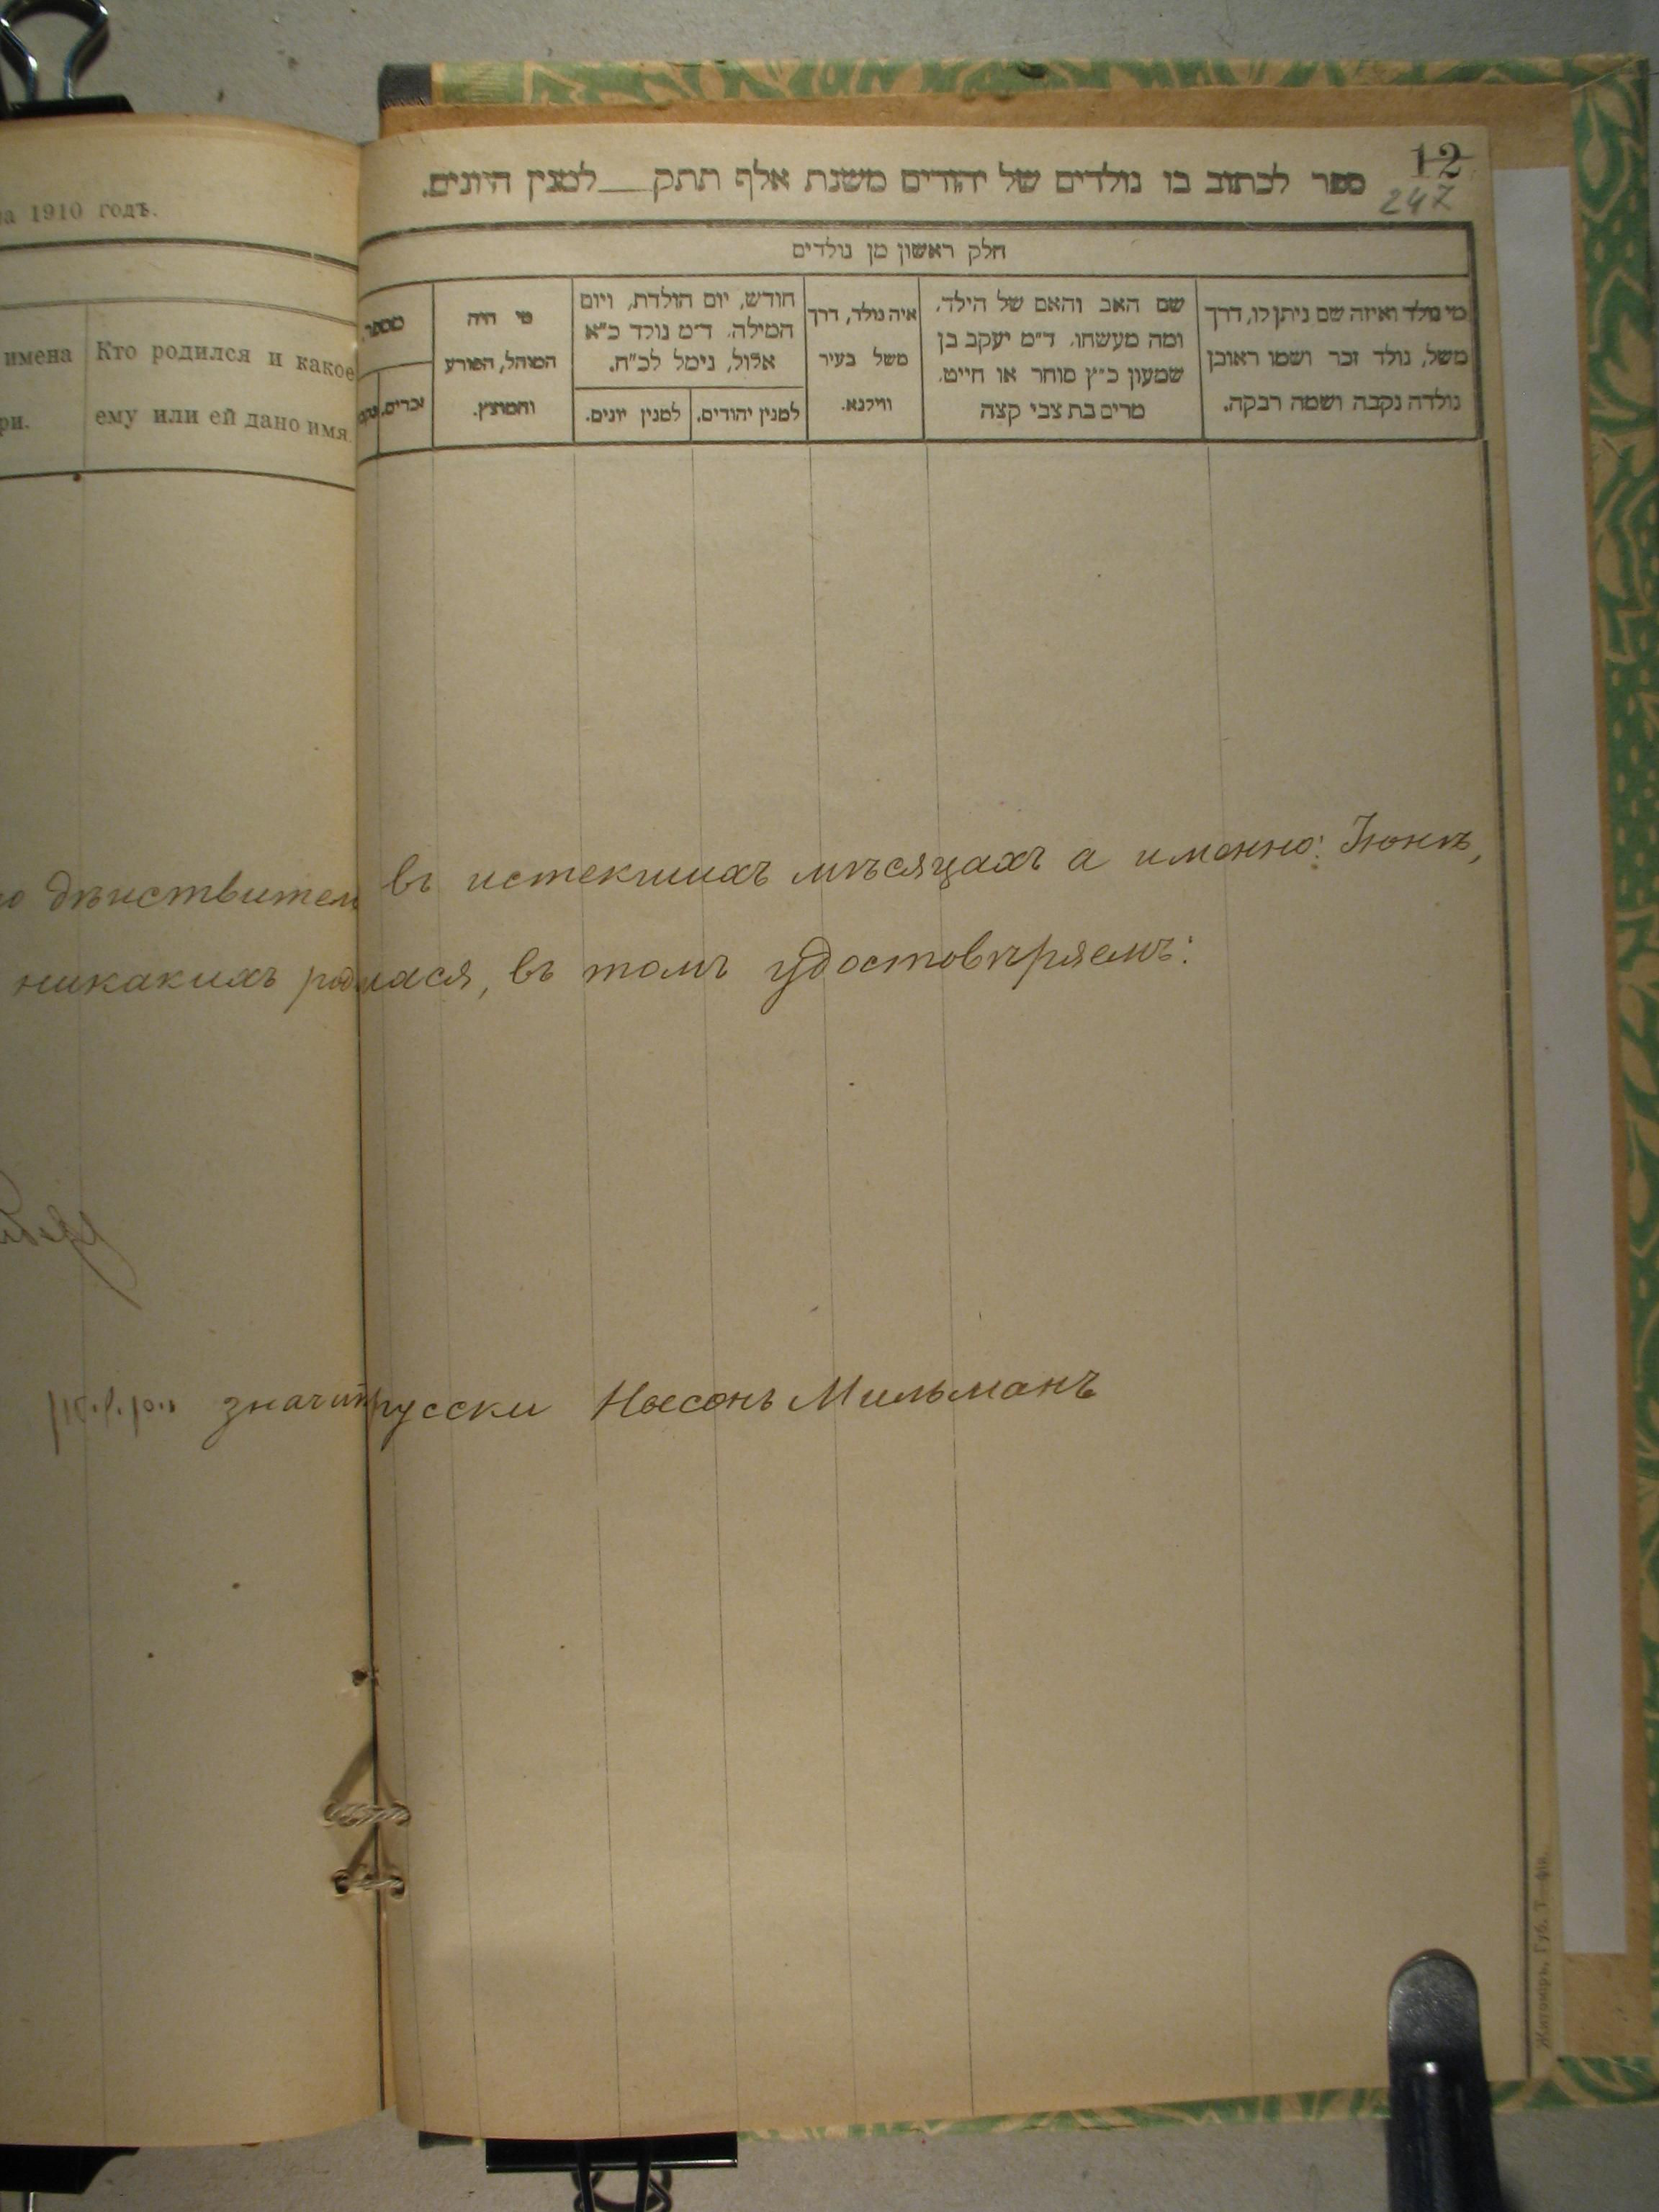 на 1910 годъ.
имена
ри.
Кто родился и какое
ему или ей дано имя.
12
247
ספר לכתוב בו נולדים של יהודים משנת אלף תתק__למנין היונים.
חלק ראשון מן נולדים
מי נולד ואיזה שם ניתן לו, דרך
משל, נולד זכר ושמו ראובן
נולדה נקבה ושמה רבקה.
שם האב והאם של הילד,
ומה מעשהו. ד״מ יעקב בן
שמעון כ״ץ סוחר או חייט.
מרים בת צבי קצה
איה נולד, דרך
משל בעיר
ווילנא.
חודש, יום הולדת, ויום
המילה. ד״מ נולד כ״א
אלול, נימל לכ״ח.
למנין יהודים.
למנין יונים.
מי היה
המוהל, הפורע
והמוצץ.
מספר
זכרים.
дѣиствител въ истекшихъ мѣсяцахъ а именно: Іюнѣ,
никакихъ родилася, въ томъ удостовѣряемъ:
значит русски Ноесонъ Мильманъ
Житомиръ, Губ. Типогр.